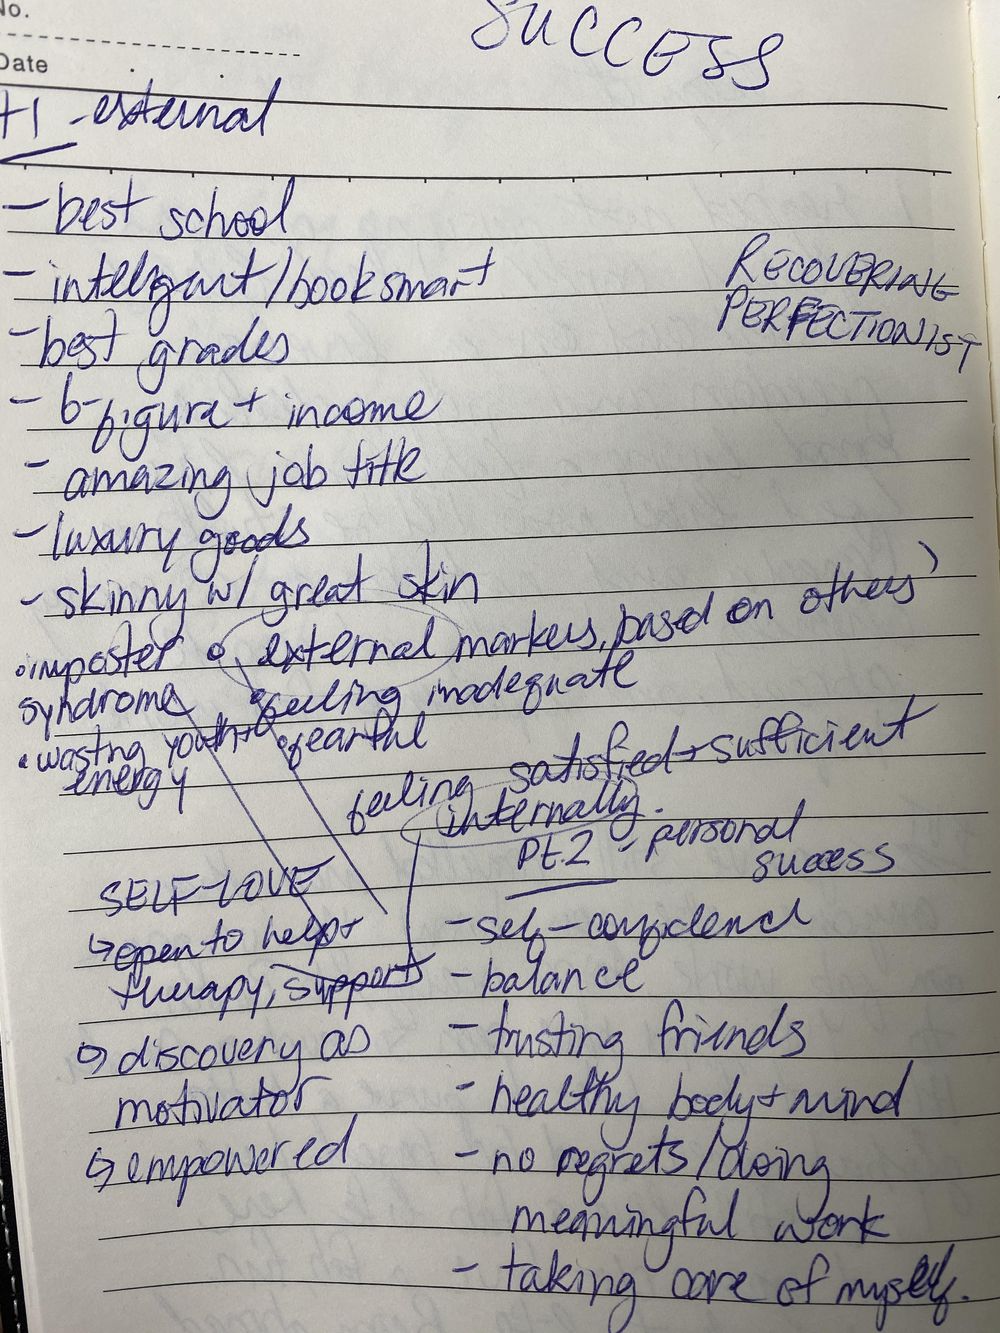 No.
SUCCESS
Date
t1 - external
- best school
- intelligant/booksmart
RECOVERING
PERFECTIONIST
- best grades
- 6-figure + income
- amazing job title
- luxury goods
- skinny w/ great skin
• imposter syndrome
• wasting youth + energy
external markers, based on others'
• feeling inadequate
• fearful
feeling satisfied + sufficient
internally.
Pt.2 - personal
success
SELF-LOVE
↳ open to help +
therapy, support
↳ discovery as
motivator
↳ empowered
- self-confidence
- balance
- trusting friends
- healthy body + mind
- no regrets/doing
meaningful work
- taking care of myself.